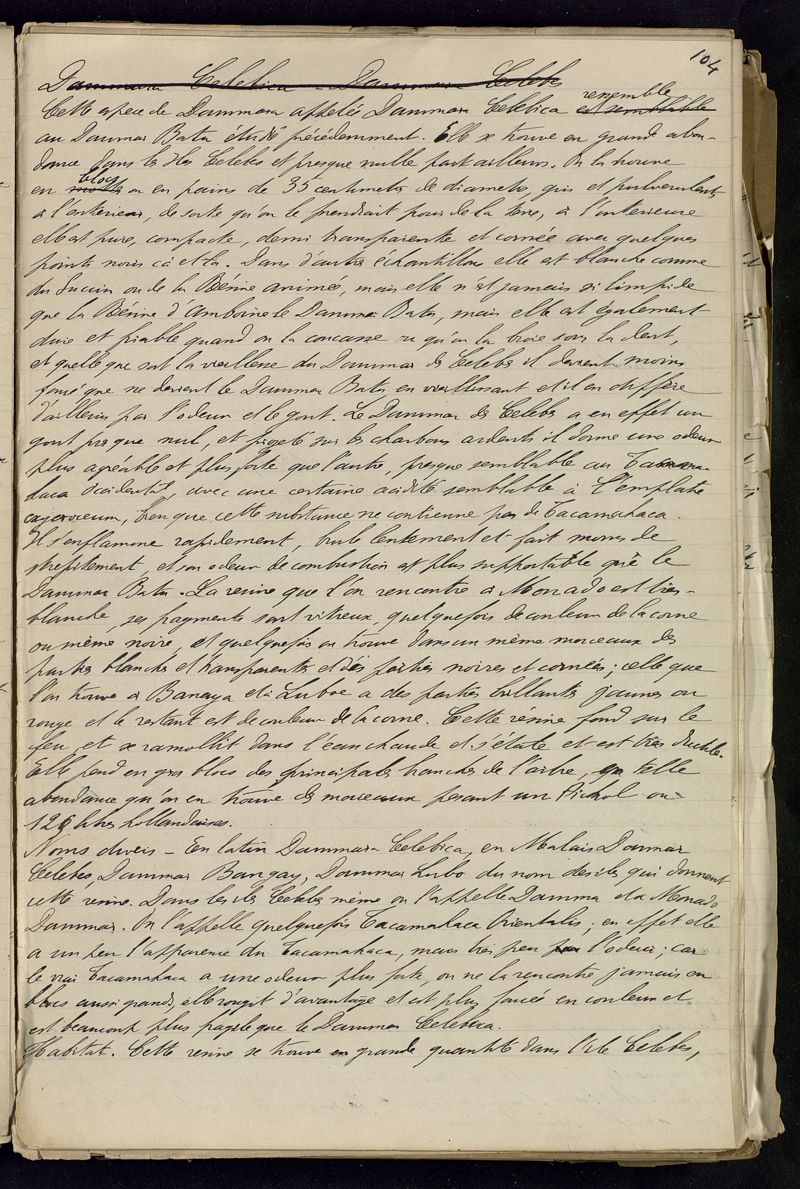 104
Dammara Celebica - Dammar Celebes
Cette espece de Dammara appelés Dammara Celebica est semblable resemble
au Dammar Batu étudié précédemment. Elle se trouve en grand abon-
dance dans les Iles Celebes et presque nulle part ailleurs. On la trouve
en motte blocs ou en pains de 35 centimetres de diametre, gris et pulverulents
à l'exterieur, de sorte qu'on le prendrait pour de la terre, à l'interieure
elle est pure, compacte, demi transparente et cornée avec quelques
points noirs cà et là. Dans d'autres échantillons elle est blanche comme
du Succin ou de la Résine animée, mais elle n'est jamais si limpide
que la Résine d'Amboine le Dammar Batu, mais elle est également
dure et friable quand on la concasse ou qu'on la broie sous la dent,
et quelle que soit la vieillesse du Dammar des Celebes il devient moins
foncé que ne devient le Dammar Batu en vieillissant et il en differe
d'ailleurs par l'odeur et le gout. Le Dammar des Celebes a en effet un
gout presque nul, et projeté sur les charbons ardents il donne une odeur
plus agréable et plus forte que l'autre, presque semblable au Tacama-
haca Occidental, avec une certaine acidité semblable à l'Emplatre
oxycroceum, bien que cette substance ne contienne pas de Tacamahaca.
Il s'enflamme rapidement, brule lentement et fait moins de
strepitement, et son odeur de combustion est plus supportable que le
Dammar Batu. La resine que l'on rencontre à Monado est très-
blanche, ses fragments sont vitreux, quelquefois de couleur de la corne
ou même noire, et quelquefois on trouve dans un même morceaux des
parties blanches et transparentes et des parties noires et cornées; celle que
l'on trouve à Bangaya et à Luboe a des parties brillantes jaunes ou
rouge et le restant est de couleur de la corne. Cette résine fond sur le
feu et se ramollit dans l'eau chaude et s'étale et est très ductile.
Elle pend en gros blocs des principales branches de l'arbre, en telle
abondance qu'on en trouve des morceaux pesant un Pichol ou
125 livres hollandaises.
Noms divers - En latin Dammara Celebica, en Malais Dammar
Celebes, Dammar Bangay, Dammar Lubo du nom des iles qui donnent
cette resine. Dans les iles Celebes même on l'appelle Damma et à Monado
Dammar. On l'appelle quelquefois Tacamahaca Orientalis; en effet elle
a un peu l'apparence du Tacamahaca, mais très peu l'odeur; car
le vrai Tacamahaca a une odeur plus forte, on ne la rencontre jamais en
blocs aussi grands, elle rougit d'avantage et est plus foncée en couleur et
est beaucoup plus fragile que le Dammar Celebica.
Habitat. Cette resine se trouve en grande quantité dans l'ile Celebes,